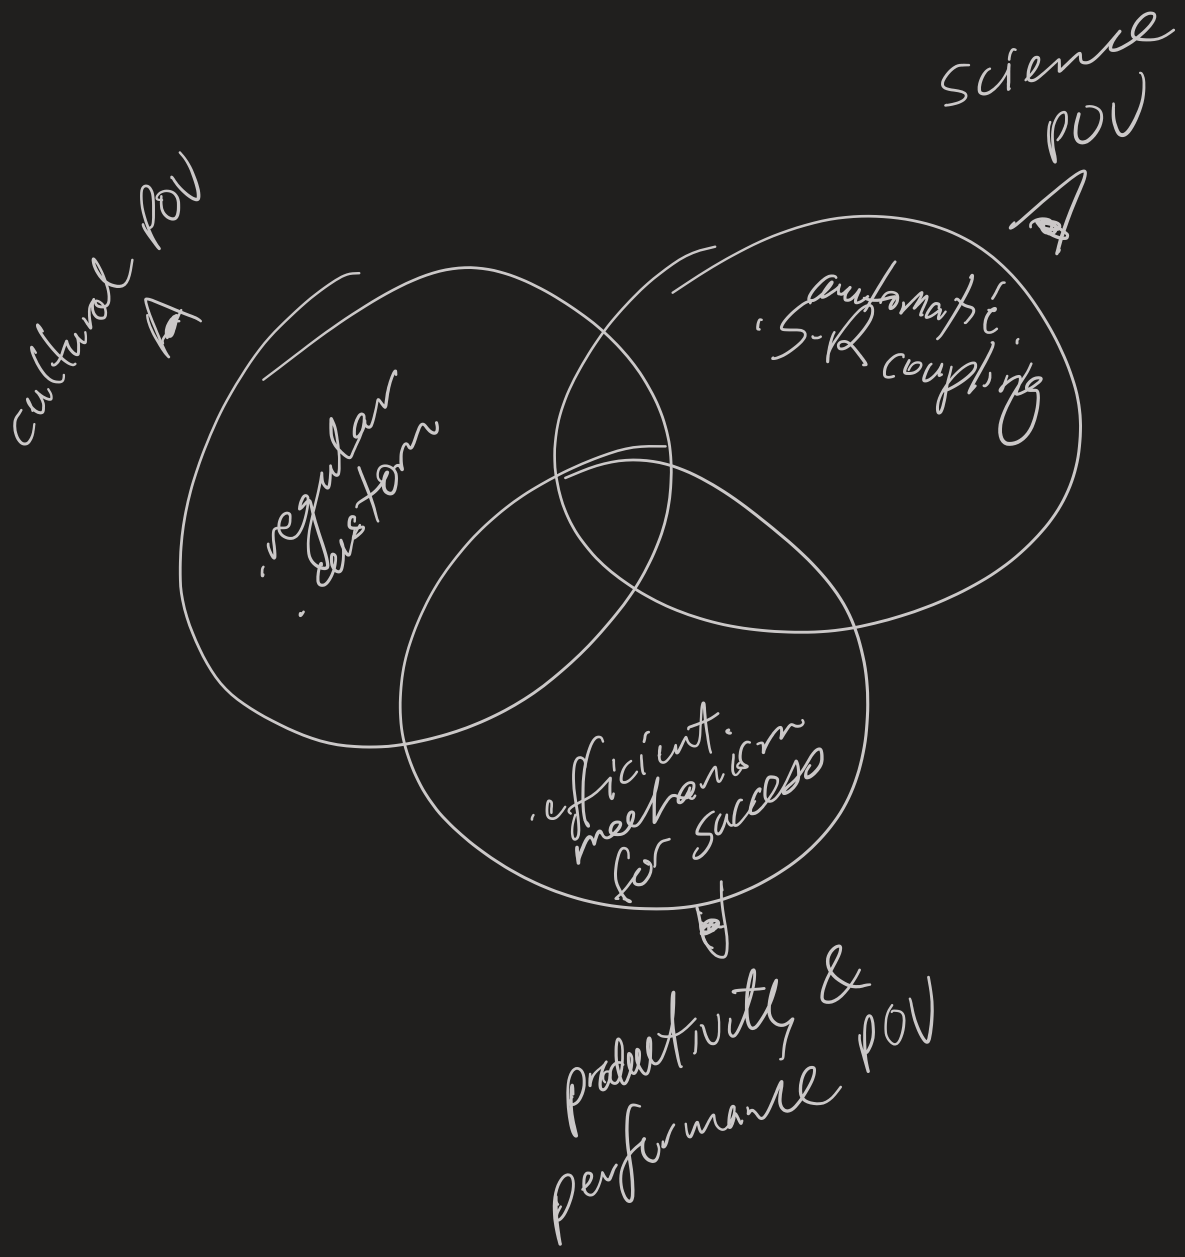 Science
POV
cultural POV
automatic
· S-R coupling
· regular
· custom
· efficient
mechanism
for success
productivity &
performance POV